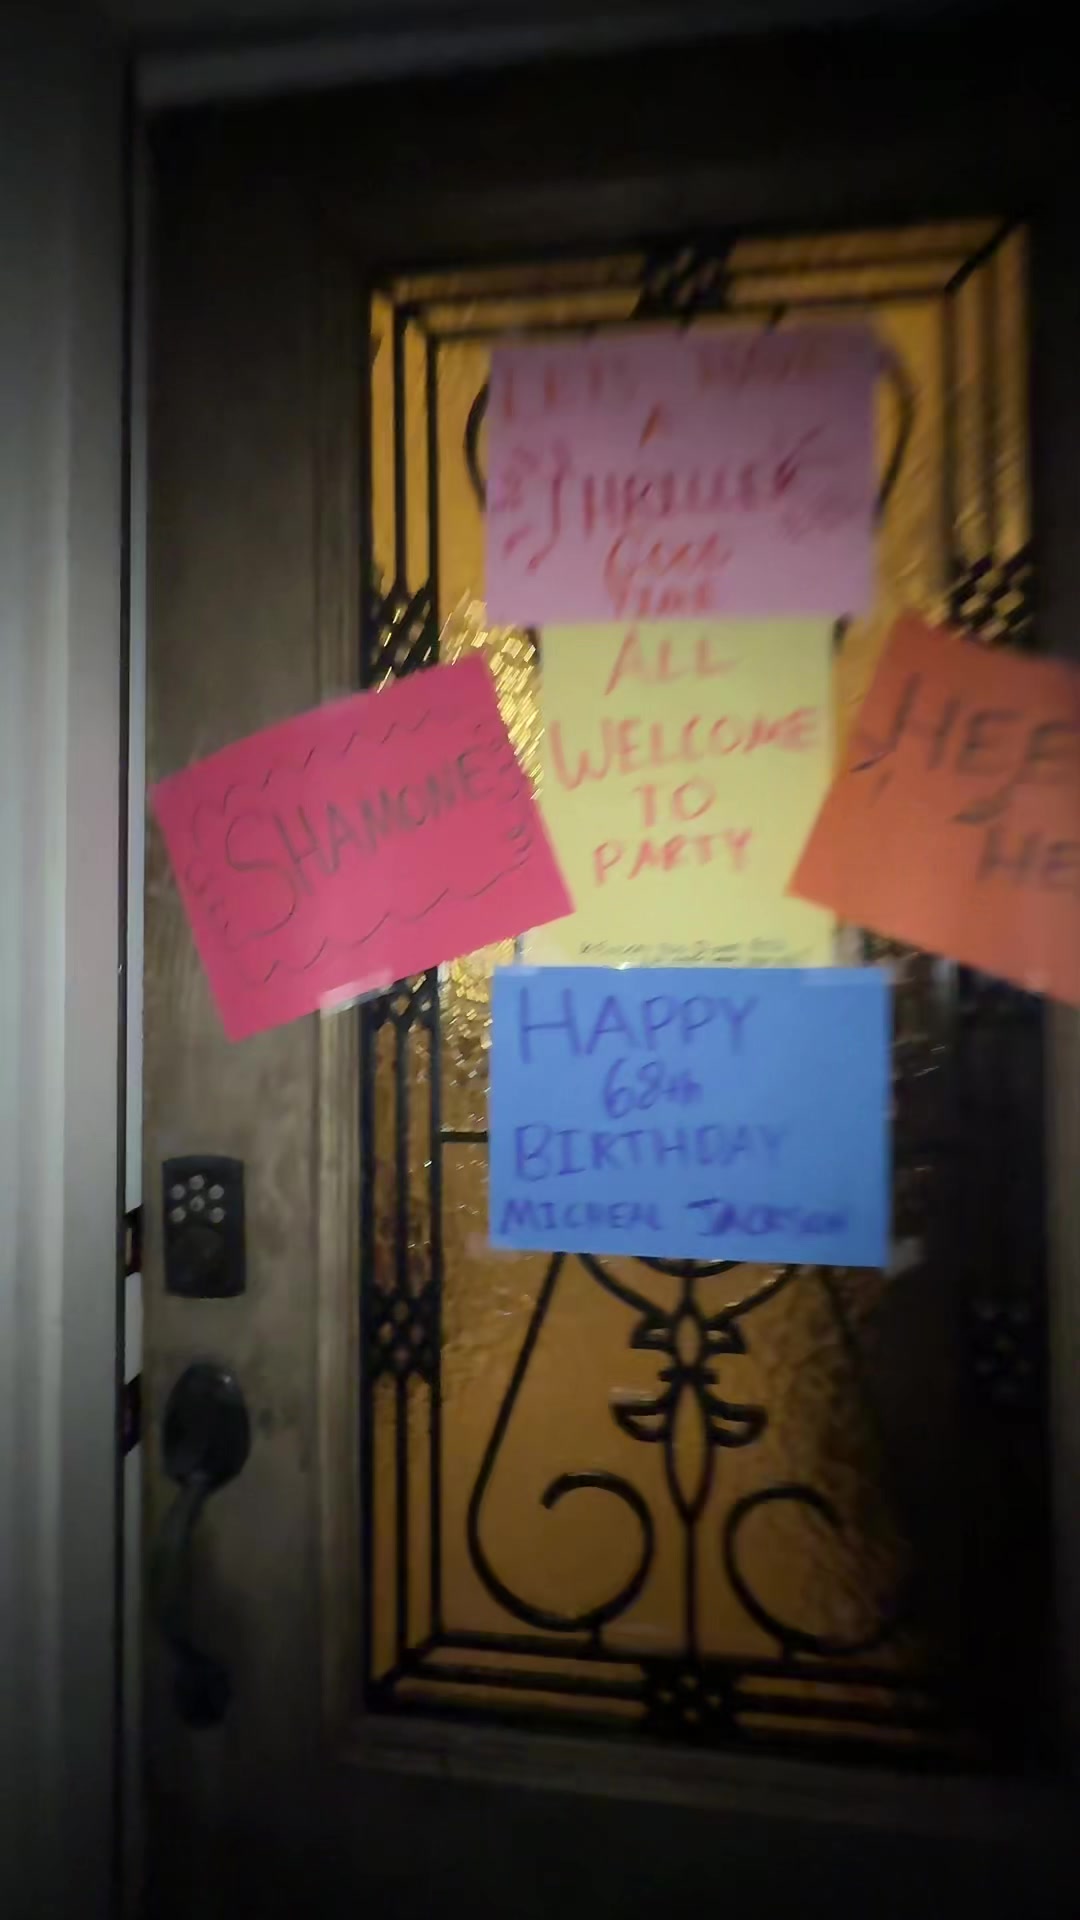 LETS HAVE
A
THRILLER
GOOD
TIME
ALL
WELCOME
TO
PARTY
SHAMONE
HEE
HE
HAPPY
68th
BIRTHDAY
MICHEAL JACKSON